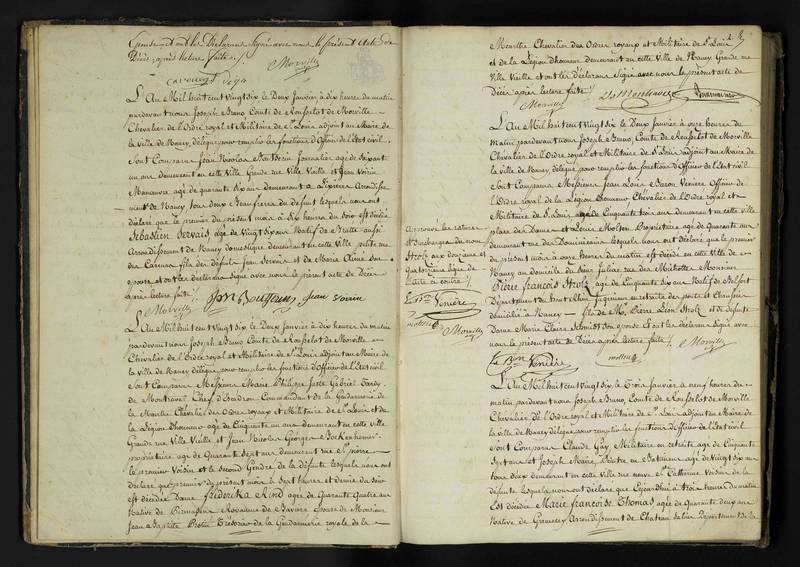 Epouse et ont les Déclarans Signé avec nous le présent Acte de
Décès, après lecture faite /.
Morville
L'An Mil huit cent Vingt six le Deux Janvier à dix heures du matin
pardevant nous Joseph Bruno Comte de Rousselot de Morville
Chevalier de l'Ordre royal et Militaire de St Louis adjoint au Maire de
la Ville de Nancy, délégué pour remplir les fonctions d'Officier de l'Etat civil
Sont Comparus Jean Nicolas Journalier agé de Soixante
un ans demeurant en cette Ville Grande rue Ville Vieille et Jean Voirin
Manoeuvre agé de quarante six ans demeurant à Arrondisse-
ment de Nancy tous deux Beaufreres du défunt lesquels nous ont
déclaré que le premier du présent mois à dix heures du soir est décédé
Sébastien Gervais agé de Vingt six ans Natif de Bratte aussi
Arrondissement de Nancy domestique demeurant en cette Ville petite rue
des Carmes fils des défunts Jean Gervais et de Marie Aline son
epouse et ont les déclarans signé avec nous le présent acte de Décès
après lecture faite /.
Morville Jean Voirin
L'An Mil huit cent Vingt six, le Deux Janvier à dix heures du matin
pardevant nous Joseph Bruno, Comte de Rousselot de Morville
Chevalier de l'Ordre royal et Militaire de St Louis adjoint au Maire de
la Ville de Nancy, délégué pour remplir les fonctions d'Officier de l'Etat civil
Sont Comparus Messieurs Marie Philippe Juste Gabriel Tardy
de Montravel Chef d'Escadron Commandant de la Gendarmerie de
la Meurthe Chevalier des Ordres royaux et Militaire de St Louis et de
la Légion d'honneur agé de Cinquante un ans demeurant en cette Ville
Grande rue Ville Vieille et Jean Nicolas Georges
propriétaire agé de Quarante sept ans demeurant rue St pierre
le premier Voisin et le second Gendre de la défunte, lesquels nous ont
déclaré que premier du présent mois à sept heures et demie du soir
est décédée Dame Fréderika Rind agée de Quarante Quatre ans
Native de Pirmasens Royaume de Bavière Epouse de Monsieur
Jean Baptiste Protin Trésorier de la Gendarmerie royale de la
Meurthe Chevalier des Ordres royaux et Militaire de St Louis
et de la Légion d'honneur demeurant en cette Ville de Nancy Grande rue
Ville Vieille et ont les déclarans signé avec nous le présent acte de
Décès après lecture faite /.
Morville
L'An Mil huit cent Vingt six le Deux Janvier à onze heures du
matin pardevant nous Joseph Bruno, Comte de Rousselot de Morville
Chevalier de l'Ordre royal et Militaire de St Louis adjoint au Maire de
la Ville de Nancy, délégué pour remplir les fonctions d'Officier de l'Etat civil
Sont Comparus Messieurs Jean Louis Baron Veniere Officier de
l'Ordre Royal de la Légion d'honneur Chevalier de l'Ordre royal et
Militaire de St Louis agé de Cinquante trois ans demeurant en cette Ville
place des Dames et Louis Propriétaire agé de Quarante ans
demeurant rue des Dominicains lesquels nous ont déclaré que le premier
du présent mois à onze heures du matin est décédé en cette Ville de
Nancy au domicile du Sieur rue des Michottes Monsieur
Pierre François Strolz agé de Cinquante six ans Natif de Belfort
Département du haut Rhin Ingénieur en retraite des ponts et Chaussées
domicilié à Nancy fils de M. Pierre Léon Strolz et de défunte
Dame Marie Claire Schmidt son epouse et ont les déclarans signé avec
nous le présent acte de Décès après lecture faite /. Morville
Bon Veniere
Approuvé les ratures
et surcharges du nom
Strolz aux douzieme et
quatorzieme lignes de
l'acte ci contre /.
Le Bon Veniere
Morville
L'An Mil huit cent Vingt six, le Trois Janvier à neuf heures du
matin pardevant nous Joseph Bruno, Comte de Rousselot de Morville
Chevalier de l'Ordre royal et Militaire de St Louis adjoint au Maire de
la Ville de Nancy délégué pour remplir les fonctions d'Officier de l'Etat civil
Sont Comparus Claude Gay Militaire en retraite agé de Cinquante
Sept ans et Joseph Marie, Peintre en Batiment agé de Vingt six ans
tous deux demeurant en cette Ville rue neuve Ste Catherine Voisins de la
défunte lesquels nous ont déclaré que Cejourd'hui à trois heures du matin
Est décédée Marie Françoise Thomas agée de Quarante deux ans
Native de Gremecey Arrondissement de Chateau Salins Département de la